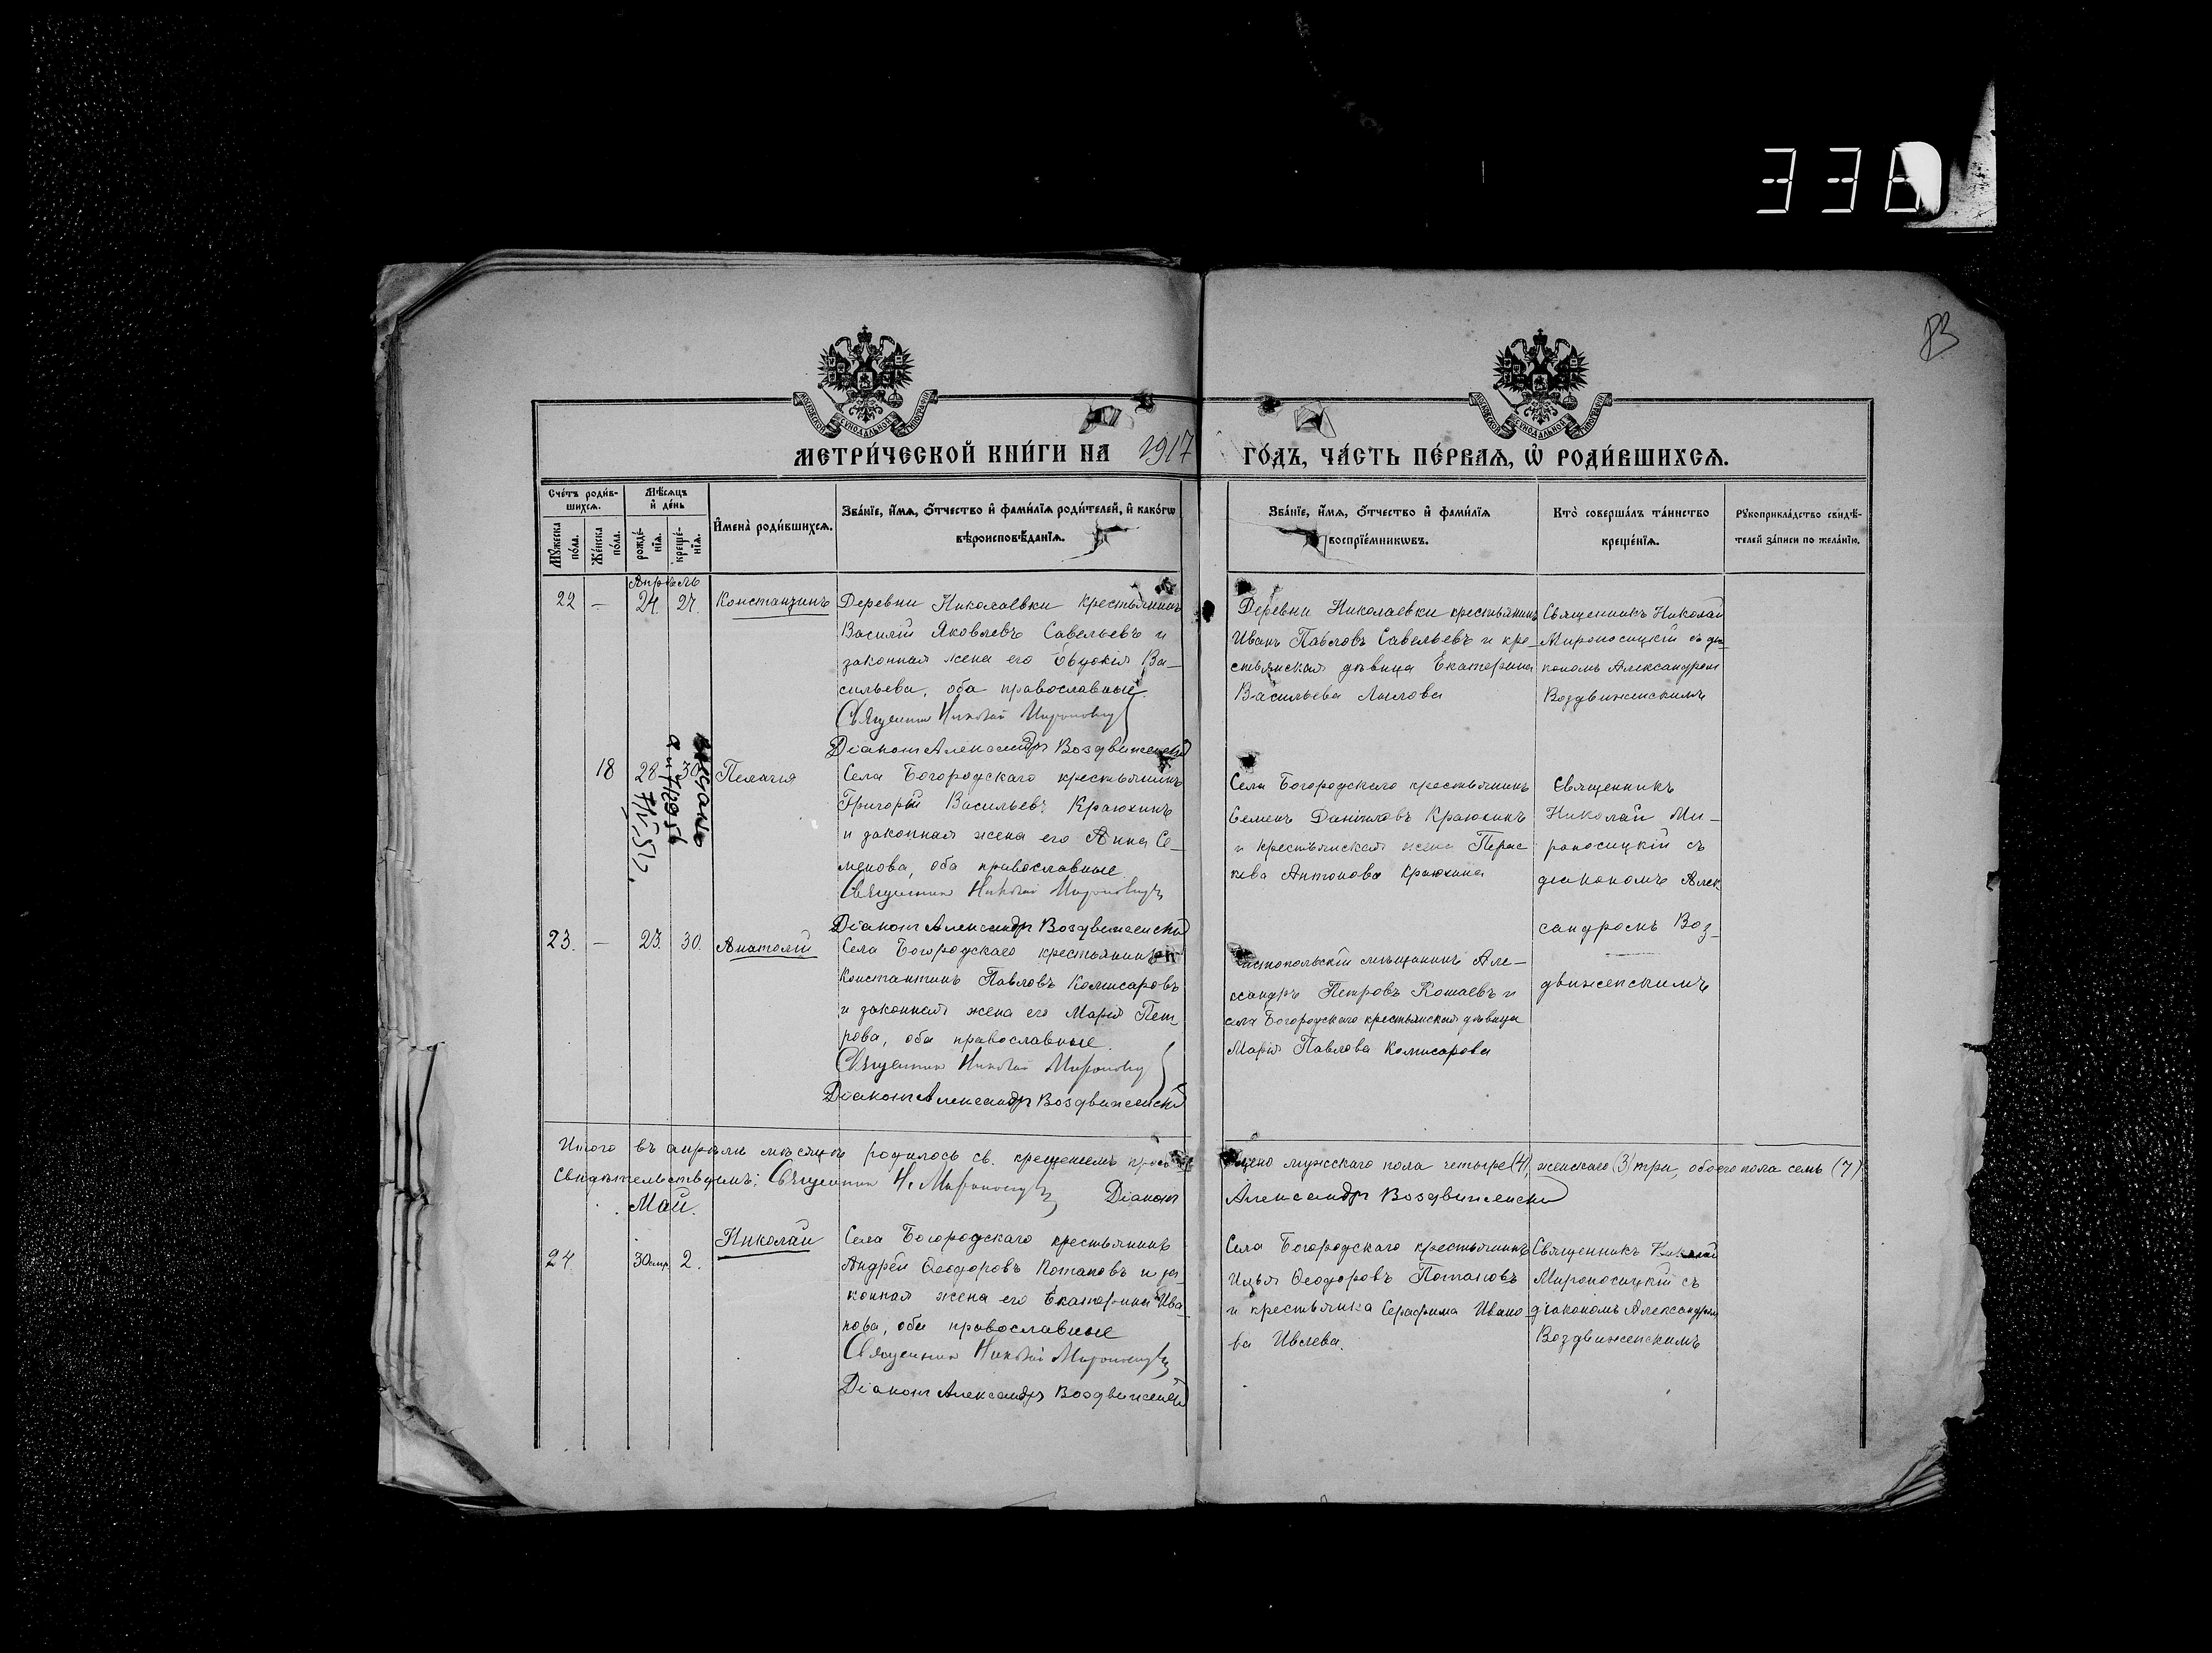 338
83
МЕТРИ́ЧЕСКОЙ КНИ́ГИ НА 1917 ГО́ДЪ, ЧА́СТЬ ПЕ́РВАЯ, Ѡ҆ РОДИ́ВШИХСЯ.
Сче́тъ роди́в-
шихся.
Мѣ́сяцъ
и҆ де́нь
Мꙋ́жеска
по́ла.
Же́нска
по́ла.
рожде́-
нїя.
креще́-
нїя.
И҆мена̀ роди́вшихся.
Зва́нїе, и҆́мя, ѻ҆́тчество и҆ фами́лїя роди́телей, и҆ како́гѡ
вѣроисповѣ́данїя.
Зва́нїе, и҆́мя, ѻ҆́тчество и҆ фами́лїя
воспрїе́мникѡвъ.
Кто̀ соверша́лъ та́инство
креще́нїя.
Рꙋкоприкла́дство свидѣ́-
телей за́писи по жела́нїю.
Апрѣль
22 — 24. 27. Константинъ
Деревни Николаевки крестьянинъ
Василій Яковлевъ Савельевъ и
законная жена его Евдокія Ва-
сильева, оба православные.
Священник Николай Мироносиц
Діакон Александр Воздвиженскій
Деревни Николаевки крестьянинъ
Иванъ Павловъ Савельевъ и кре-
стьянская дѣвица Екатерина
Васильева
Священникъ Николай
Мироносицкій съ діа-
кономъ Александром
Воздвиженскимъ
18 28 30 Пелагія
Села Богородскаго крестьянинъ
Григорій Васильевъ Краюхинъ
и законная жена его Анна Се-
менова, оба православные.
Священник Николай Мироносиц
Діакон Александр Воздвиженскій
Села Богородскаго крестьянинъ
Семенъ Даниловъ Краюхинъ
и крестьянская жена Парас
кева Антонова Краюхина
Священникъ
Николай Ми-
роносицкій съ
діакономъ Алек
сандромъ Воз-
движенскимъ
23. — 23. 30. Анатолій
Села Богородскаго крестьянинъ
Константинъ Павловъ Комисаровъ
и законная жена его Марія Пет-
рова, оба православные.
Священник Николай Мироносиц
Діакон Александр Воздвиженскій
Чистопольскій мѣщанинъ Але-
ксандръ Петровъ Кошаевъ и
села Богородскаго крестьянская дѣвица
Марія Павлова Комисарова
Итого въ апрѣлѣ мѣсяцѣ родилось св. крещеніемъ просвѣщено мужскаго пола четыре (4), женскаго (3) три, обоего пола семь (7)
Свидѣтельствуемъ: Священник Н. Мироносиц Діакон Александр Воздвиженскій
Май.
24. 30 апр. 2. Николай
Села Богородскаго крестьянинъ
Андрей Ѳеодоровъ Потаповъ и за-
конная жена его Екатерина Ива-
нова, оба православные
Священник Николай Мироносиц
Діакон Александр Воздвиженскій
Села Богородскаго крестьянинъ
Илья Ѳеодоровъ Потаповъ
и крестьянка Серафима Ивано-
ва Ивлева.
Священникъ Николай
Мироносицкій съ
діакономъ Александром
Воздвиженскимъ